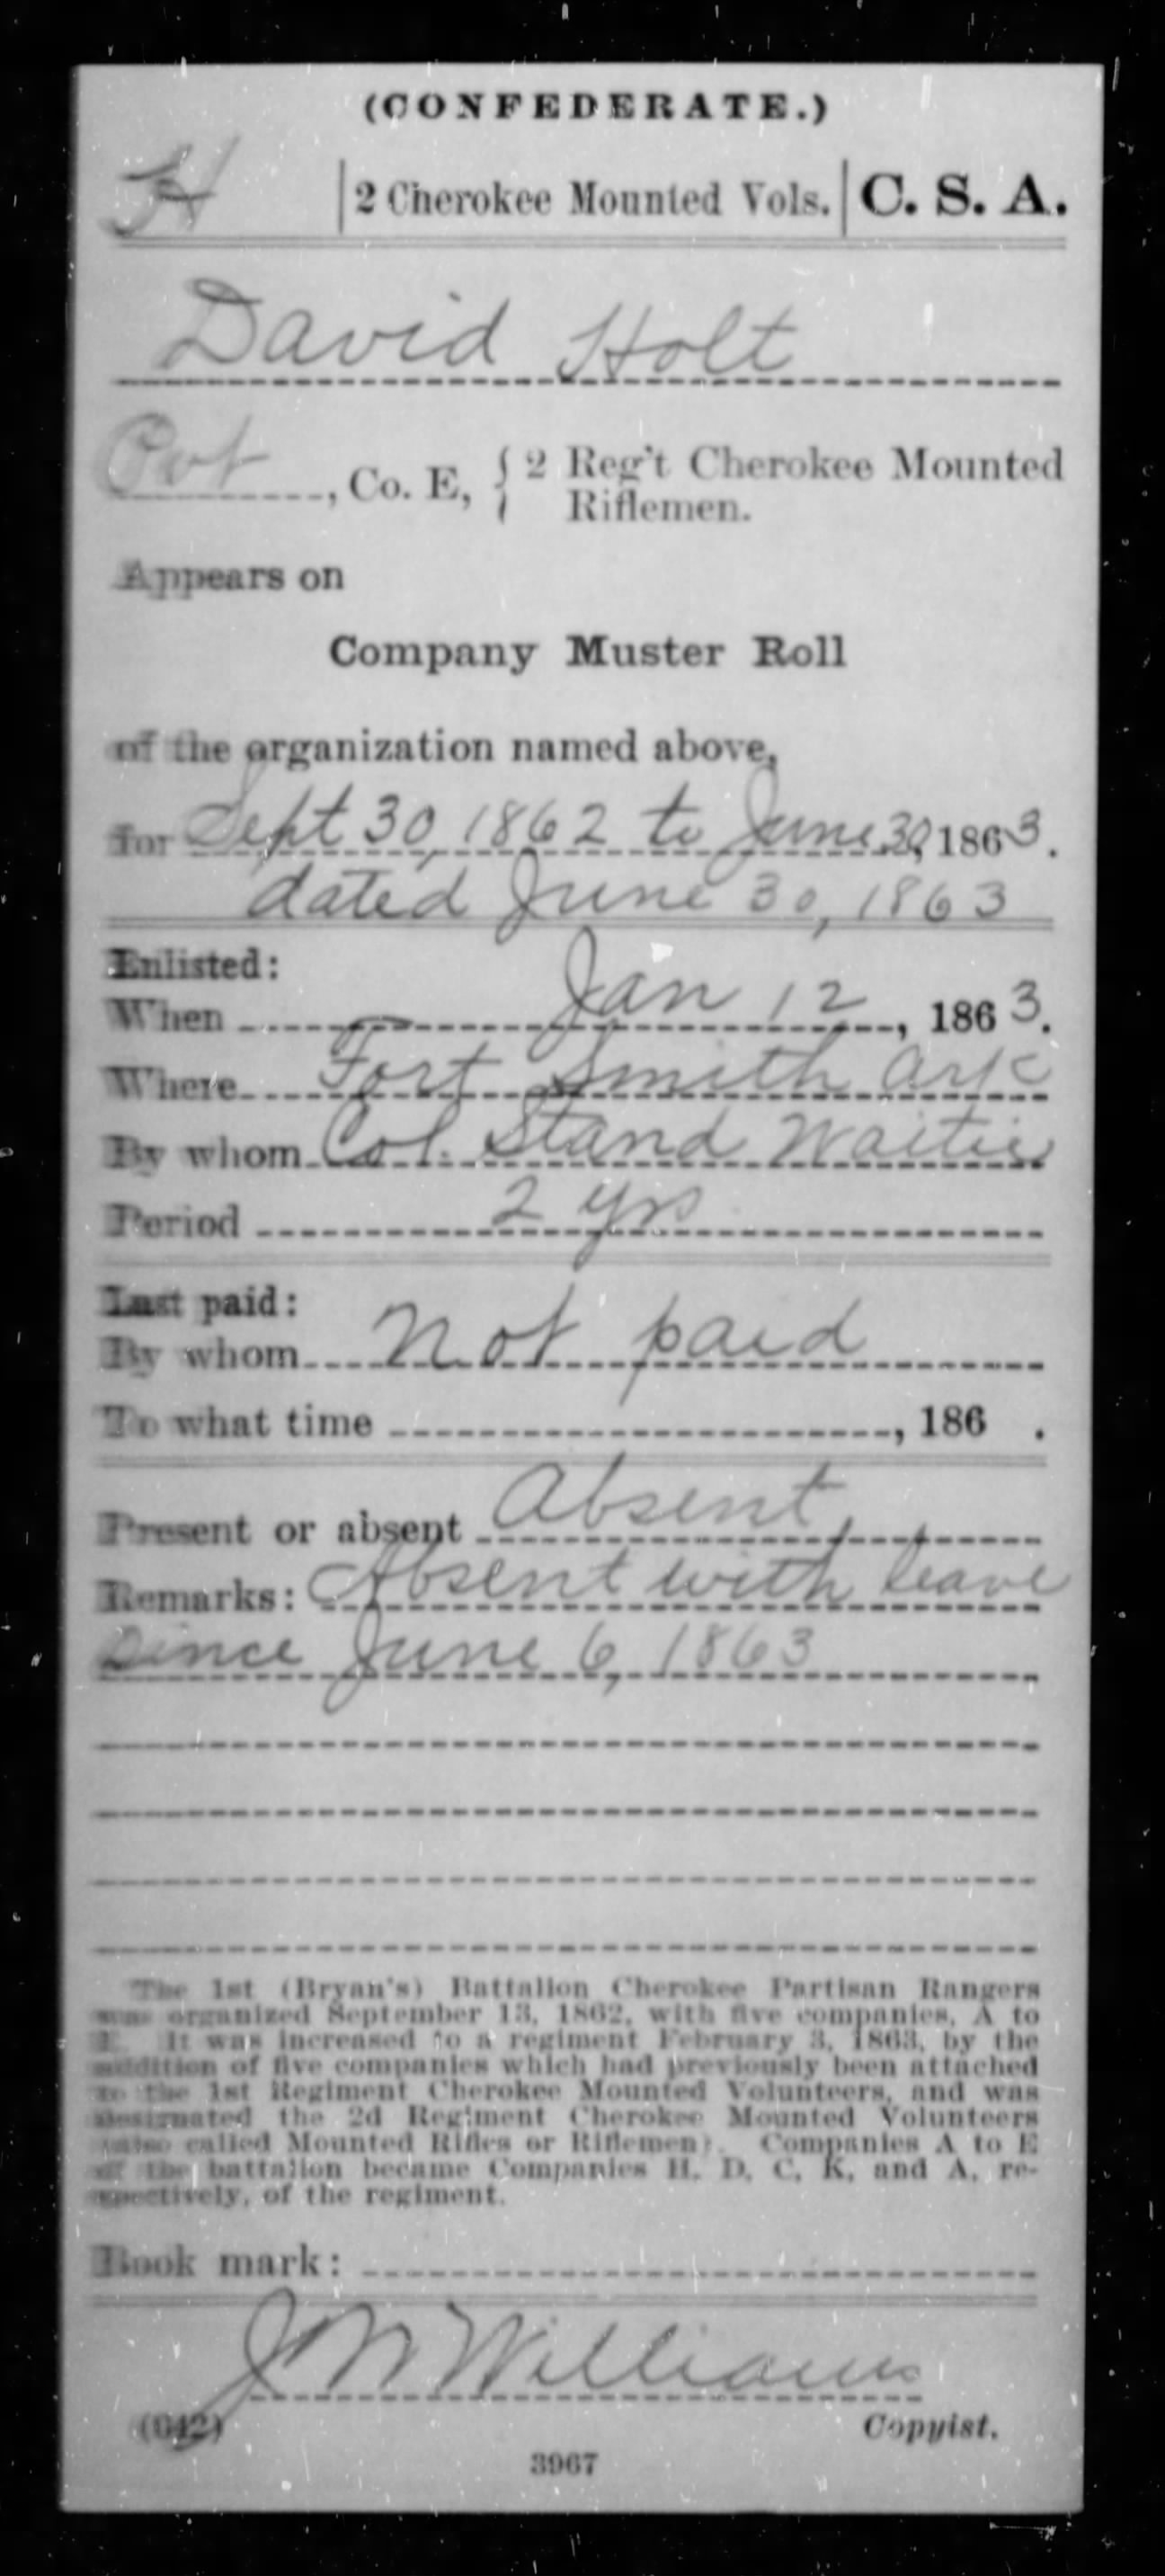 (CONFEDERATE.)
H | 2 Cherokee Mounted Vols. | C. S. A.
David Holt
Pvt, Co. E, { 2 Reg't Cherokee Mounted
Riflemen.
Appears on
Company Muster Roll
of the organization named above,
for Sept 30, 1862 to June 30, 1863.
dated June 30, 1863
Enlisted:
When Jan 12, 1863.
Where Fort Smith Ark
By whom Col. Stand Waitie
Period 2 yrs
Last paid:
By whom Not paid
To what time , 186 .
Present or absent Absent
Remarks: Absent with leave
since June 6, 1863
The 1st (Bryan's) Battalion Cherokee Partisan Rangers
was organized September 13, 1862, with five companies, A to
E. It was increased to a regiment February 3, 1863, by the
addition of five companies which had previously been attached
to the 1st Regiment Cherokee Mounted Volunteers, and was
designated the 2d Regiment Cherokee Mounted Volunteers
(also called Mounted Rifles or Riflemen). Companies A to E
of the battalion became Companies H, D, C, K, and A, re-
spectively, of the regiment.
Book mark:
J M Williams
(642) Copyist.
3967